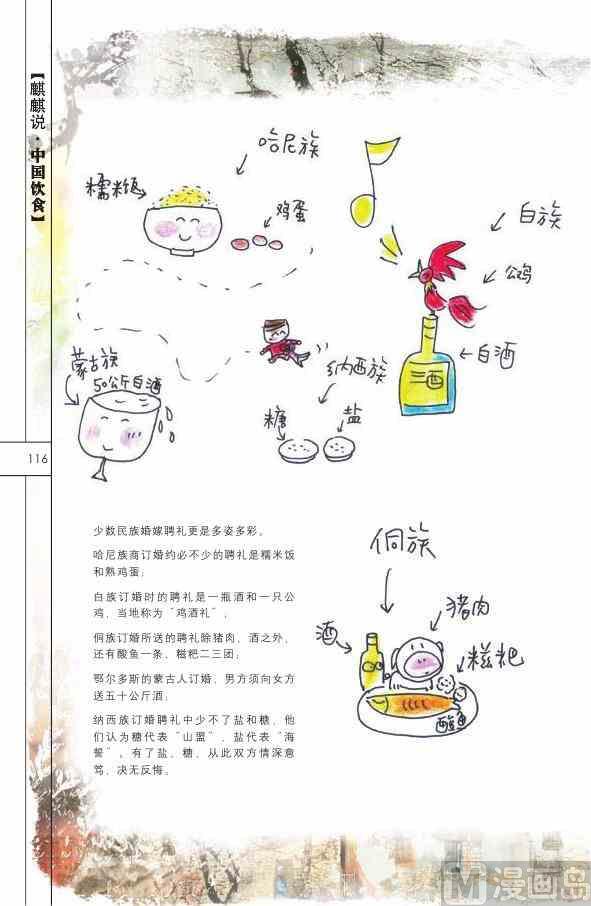 【麒麒说·中国饮食】
哈尼族
糯米饭
鸡蛋
白族
公鸡
白酒
酒
蒙古族
50公斤白酒
纳西族
糖
盐
116
少数民族婚嫁聘礼更是多姿多彩。
哈尼族商订婚约必不少的聘礼是糯米饭
和熟鸡蛋；
白族订婚时的聘礼是一瓶酒和一只公
鸡，当地称为“鸡酒礼”；
侗族订婚所送的聘礼除猪肉、酒之外，
还有酸鱼一条、糍粑二三团；
鄂尔多斯的蒙古人订婚，男方须向女方
送五十公斤酒；
纳西族订婚聘礼中少不了盐和糖，他
们认为糖代表“山盟”，盐代表“海
誓”。有了盐、糖，从此双方情深意
笃，决无反悔。
侗族
猪肉
酒
糍粑
酸鱼
漫画岛